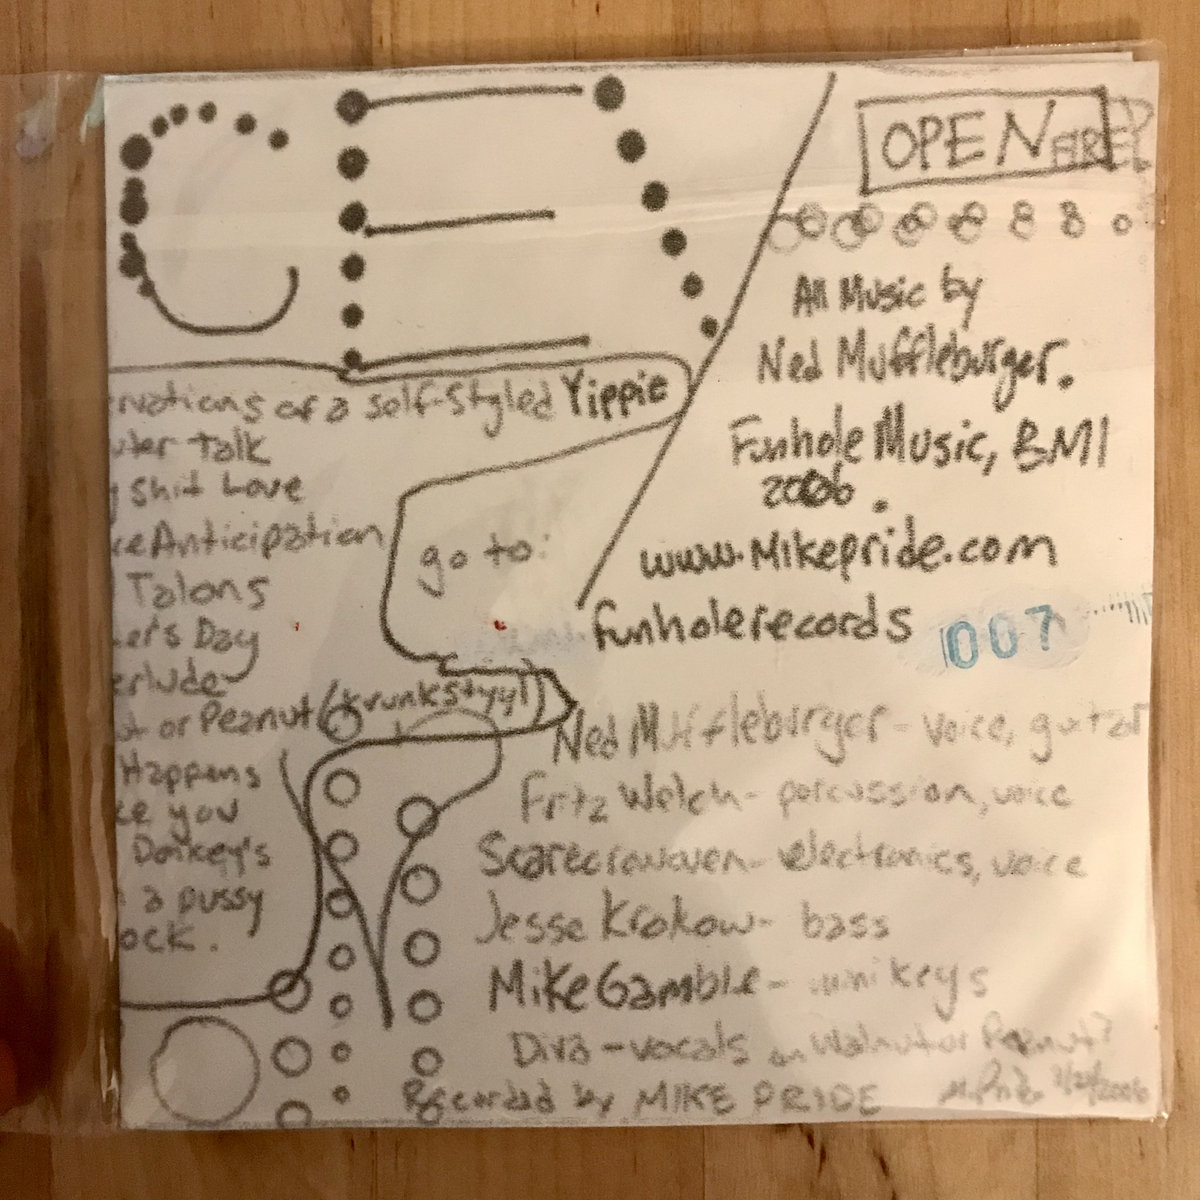 OPEN FIRE?
All Music by
Ned Muffleburger.
Funhole Music, BMI
2006.
www.Mikepride.com
funholerecords 007
of a self-styled Yippie
Talk
Shit Love
Anticipation
Talons
Day
or Peanut (krunkstyyl)
Happens
you
Donkey's
a pussy
go to:
Ned Muffleburger - voice, guitar
Fritz Welch - percussion, voice
Scarecrowoven - electronics, voice
Jesse Krakow - bass
Mike Gamble - mini keys
Diva - vocals on Walnut or Peanut?
Recorded by MIKE PRIDE